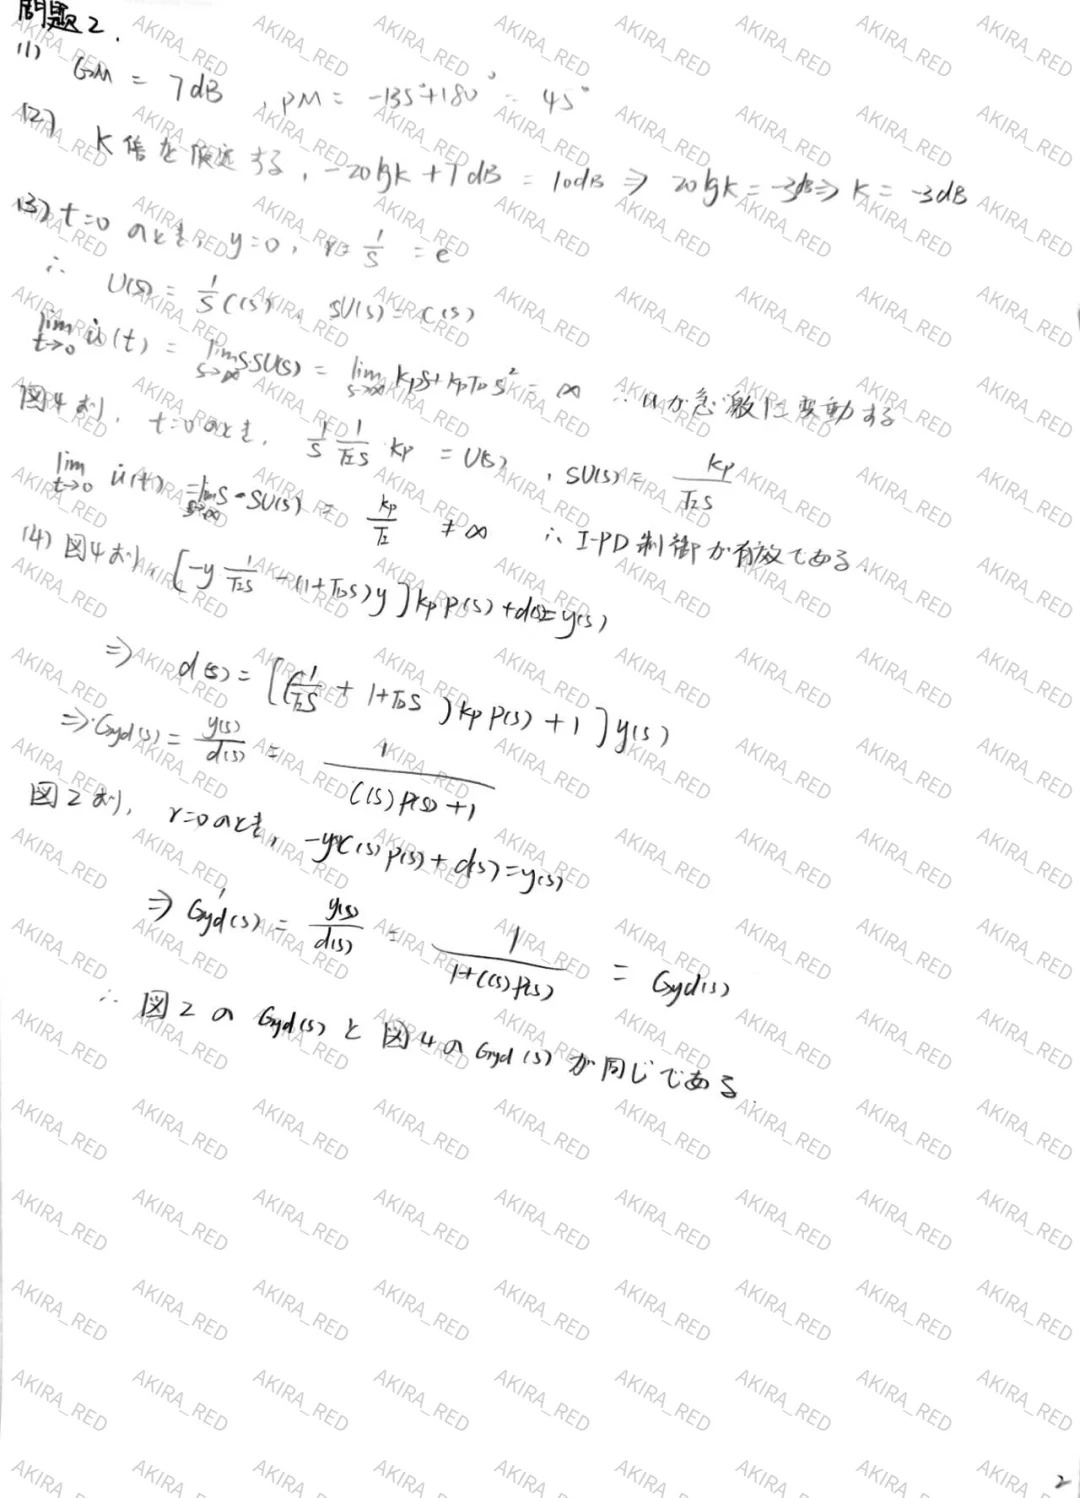 問題2.
(1)
GM = 7dB , PM = -135°+180° = 45°
(2)
K倍を仮定する, -20lgK + 7dB = 10dB ⇒ 20lgK = -3dB ⇒ K = -3dB
(3) t=0 のとき, y=0, r= 1/S = e
∴ U(s) = 1/S C(s), SU(s) = C(s)
lim t→0 u̇(t) = lim s→∞ S·SU(s) = lim s→∞ KpS+KpT_D S² = ∞ ∴ uが急激に変動する
図4より, t=0のとき, 1/S 1/(T_I S) Kp = U(s), SU(s) = Kp/(T_I S)
lim t→0 u̇(t) = lim s→∞ S·SU(s) = Kp/T_I ≠ ∞ ∴ I-PD制御が有効である.
(4) 図4より, [-y 1/(T_I S) - (1+T_D S)y] Kp P(s) + d(s) = y(s)
⇒ d(s) = [(1/(T_I S) + 1+T_D S) Kp P(s) + 1] y(s)
⇒ Gyd(s) = y(s)/d(s) = 1/(C(s)P(s)+1)
図2より, r=0のとき, -yC(s)P(s) + d(s) = y(s)
⇒ G'yd(s) = y(s)/d(s) = 1/(1+C(s)P(s)) = Gyd(s)
∴ 図2の Gyd(s) と 図4の Gyd(s) が同じである.
2
AKIRA_RED